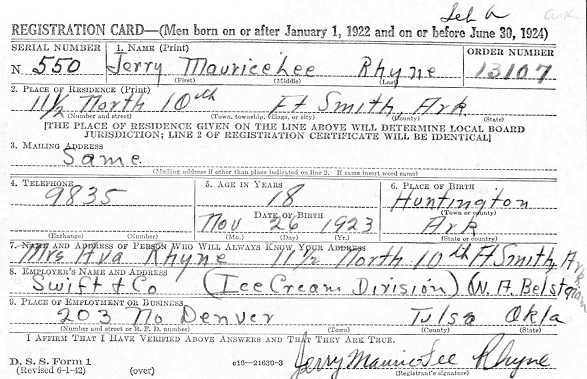 Seb A ark
REGISTRATION CARD—(Men born on or after January 1, 1922 and on or before June 30, 1924)
SERIAL NUMBER 1. NAME (Print) ORDER NUMBER
N 550 Jerry Maurice Lee Rhyne 13107
(First) (Middle) (Last)
2. PLACE OF RESIDENCE (Print)
11½ North 10th Ft Smith, Ark
(Number and street) (Town, township, village, or city) (County) (State)
[THE PLACE OF RESIDENCE GIVEN ON THE LINE ABOVE WILL DETERMINE LOCAL BOARD
JURISDICTION; LINE 2 OF REGISTRATION CERTIFICATE WILL BE IDENTICAL]
3. MAILING ADDRESS
Same
(Mailing address if other than place indicated on line 2. If same insert word same)
4. TELEPHONE 5. AGE IN YEARS 6. PLACE OF BIRTH
9835 18 Huntington
DATE OF BIRTH (Town or county)
Nov 26 1923 Ark
(Exchange) (Number) (Mo.) (Day) (Yr.) (State or country)
7. NAME AND ADDRESS OF PERSON WHO WILL ALWAYS KNOW YOUR ADDRESS
Mrs Ava Rhyne 11½ North 10th Ft Smith, Ark
8. EMPLOYER'S NAME AND ADDRESS
Swift & Co (Ice Cream Division) (W. A.
9. PLACE OF EMPLOYMENT OR BUSINESS
203 No Denver Tulsa Okla
(Number and street or R. F. D. number) (Town) (County) (State)
I AFFIRM THAT I HAVE VERIFIED ABOVE ANSWERS AND THAT THEY ARE TRUE.
D. S. S. Form 1
(Revised 6-1-42) (over) c16—21630-3 Jerry Maurice Lee Rhyne
(Registrant's signature)